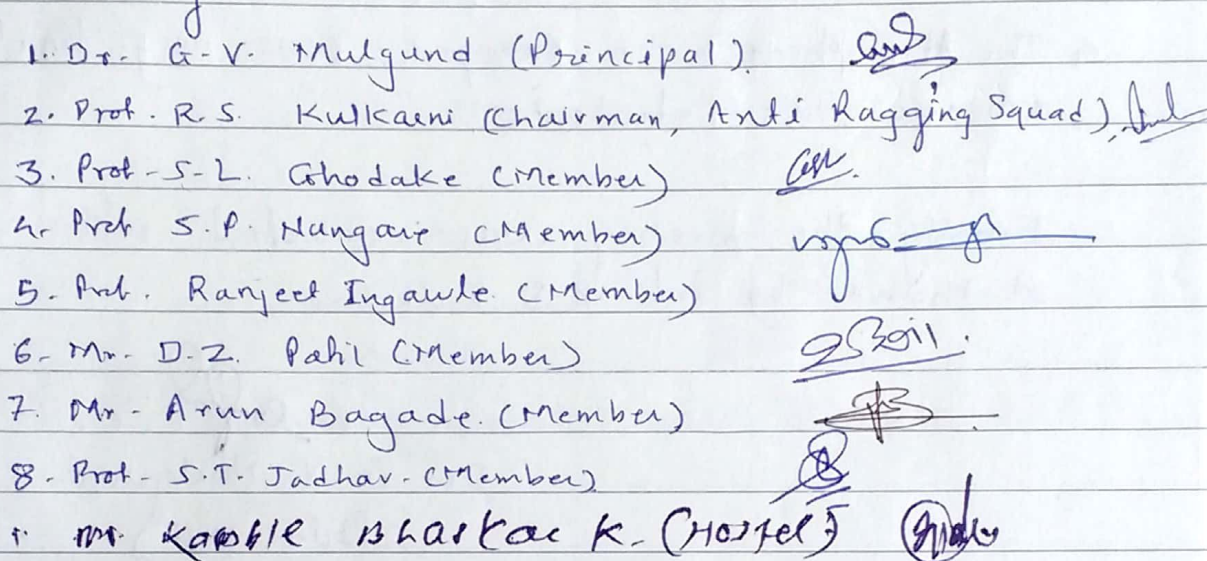 1. Dr. G. V. Mulgund (Principal).
2. Prof. R. S. Kulkarni (Chairman, Anti Ragging Squad).
3. Prof. S. L. Ghodake (Member)
4. Prof S. P. Nangare (Member)
5. Prof. Ranjeet Ingawle (Member)
6. Mr. D. Z. Patil (Member)
7. Mr. Arun Bagade. (Member)
8. Prof. S. T. Jadhav. (Member)
Mr. Kamble Bhaskar K. (Hostel)